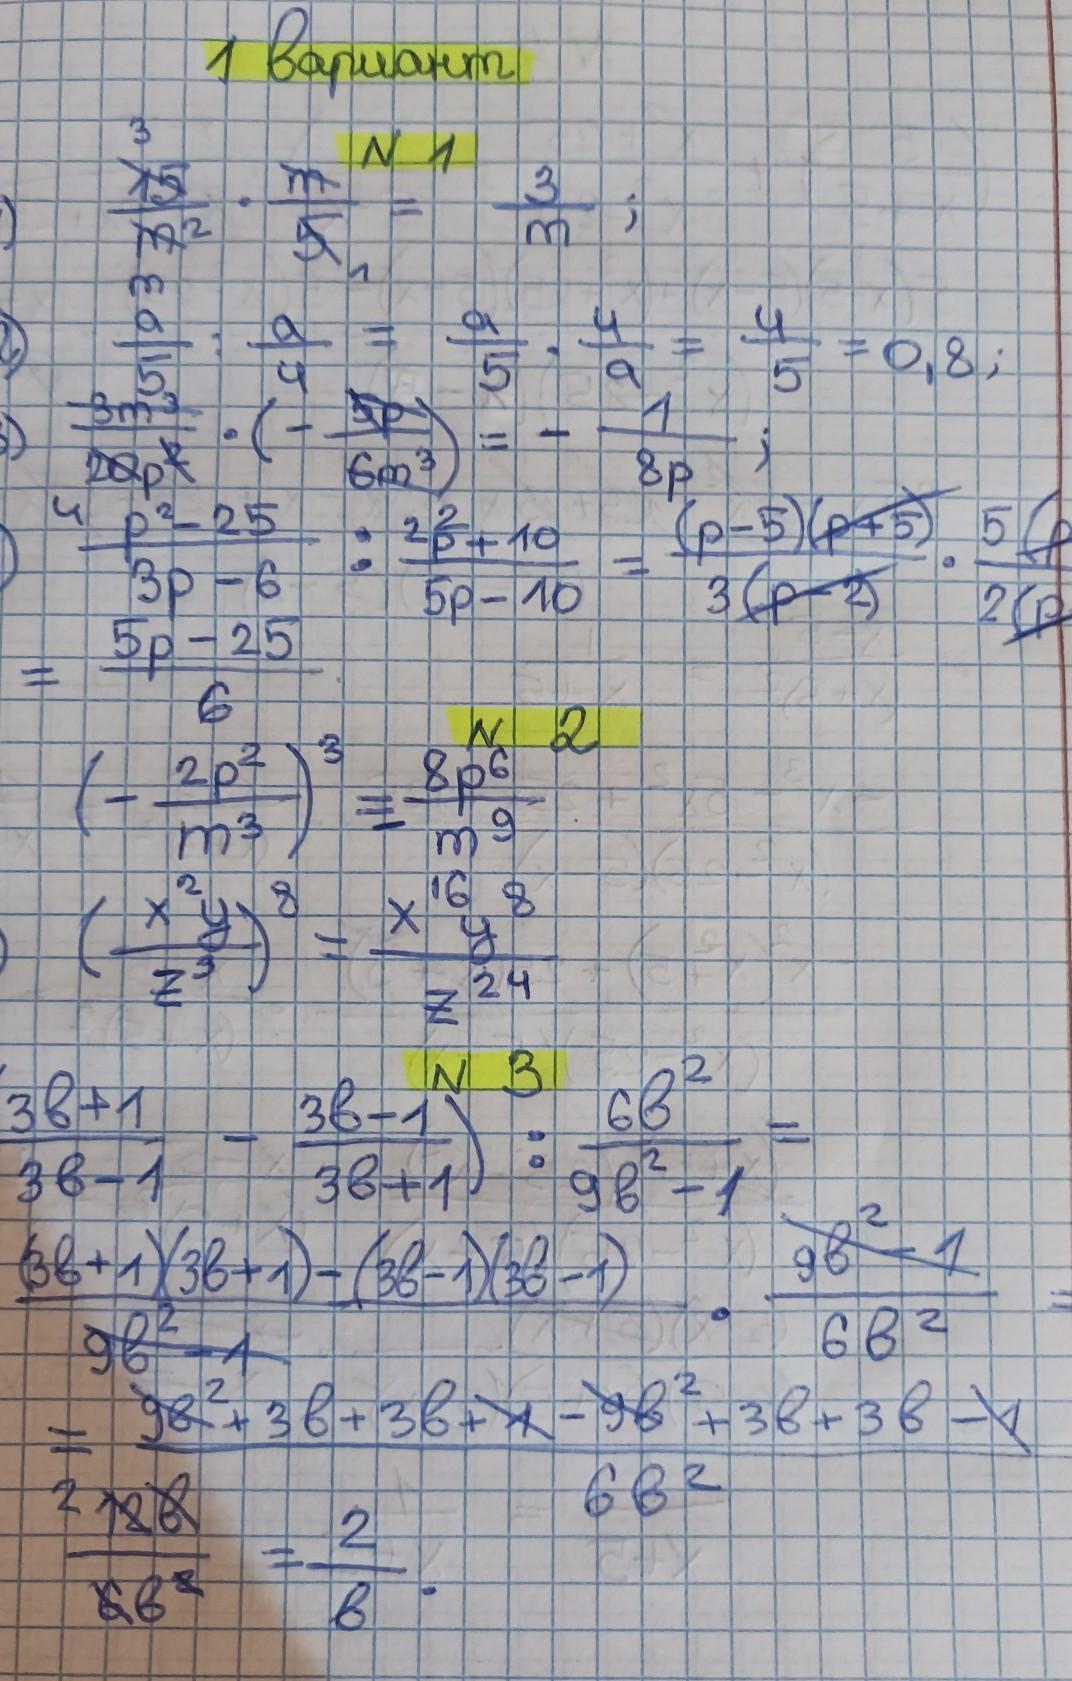 1 вариант
N 1
15/m² · m/5 = 3/m ;
a/5 : a/4 = a/5 · 4/a = 4/5 = 0,8;
3m³/20p² · (- 5p/6m³) = - 1/8p ;
p² - 25/3p - 6 : 2p + 10/5p - 10 = (p - 5)(p + 5)/3(p - 2) · 5(p/2(p
= 5p - 25/6
N 2
(- 2p²/m³)³ = 8p⁶/m⁹
(x²y/z³)⁸ = x¹⁶y⁸/z²⁴
N 3
3b+1/3b-1 - 3b-1/3b+1) : 6b²/9b²-1 =
(3b+1)(3b+1)-(3b-1)(3b-1)/9b²-1 · 9b²-1/6b² =
= 9b²+3b+3b+1-9b²+3b+3b-1/6b²
12b/6b² = 2/b .